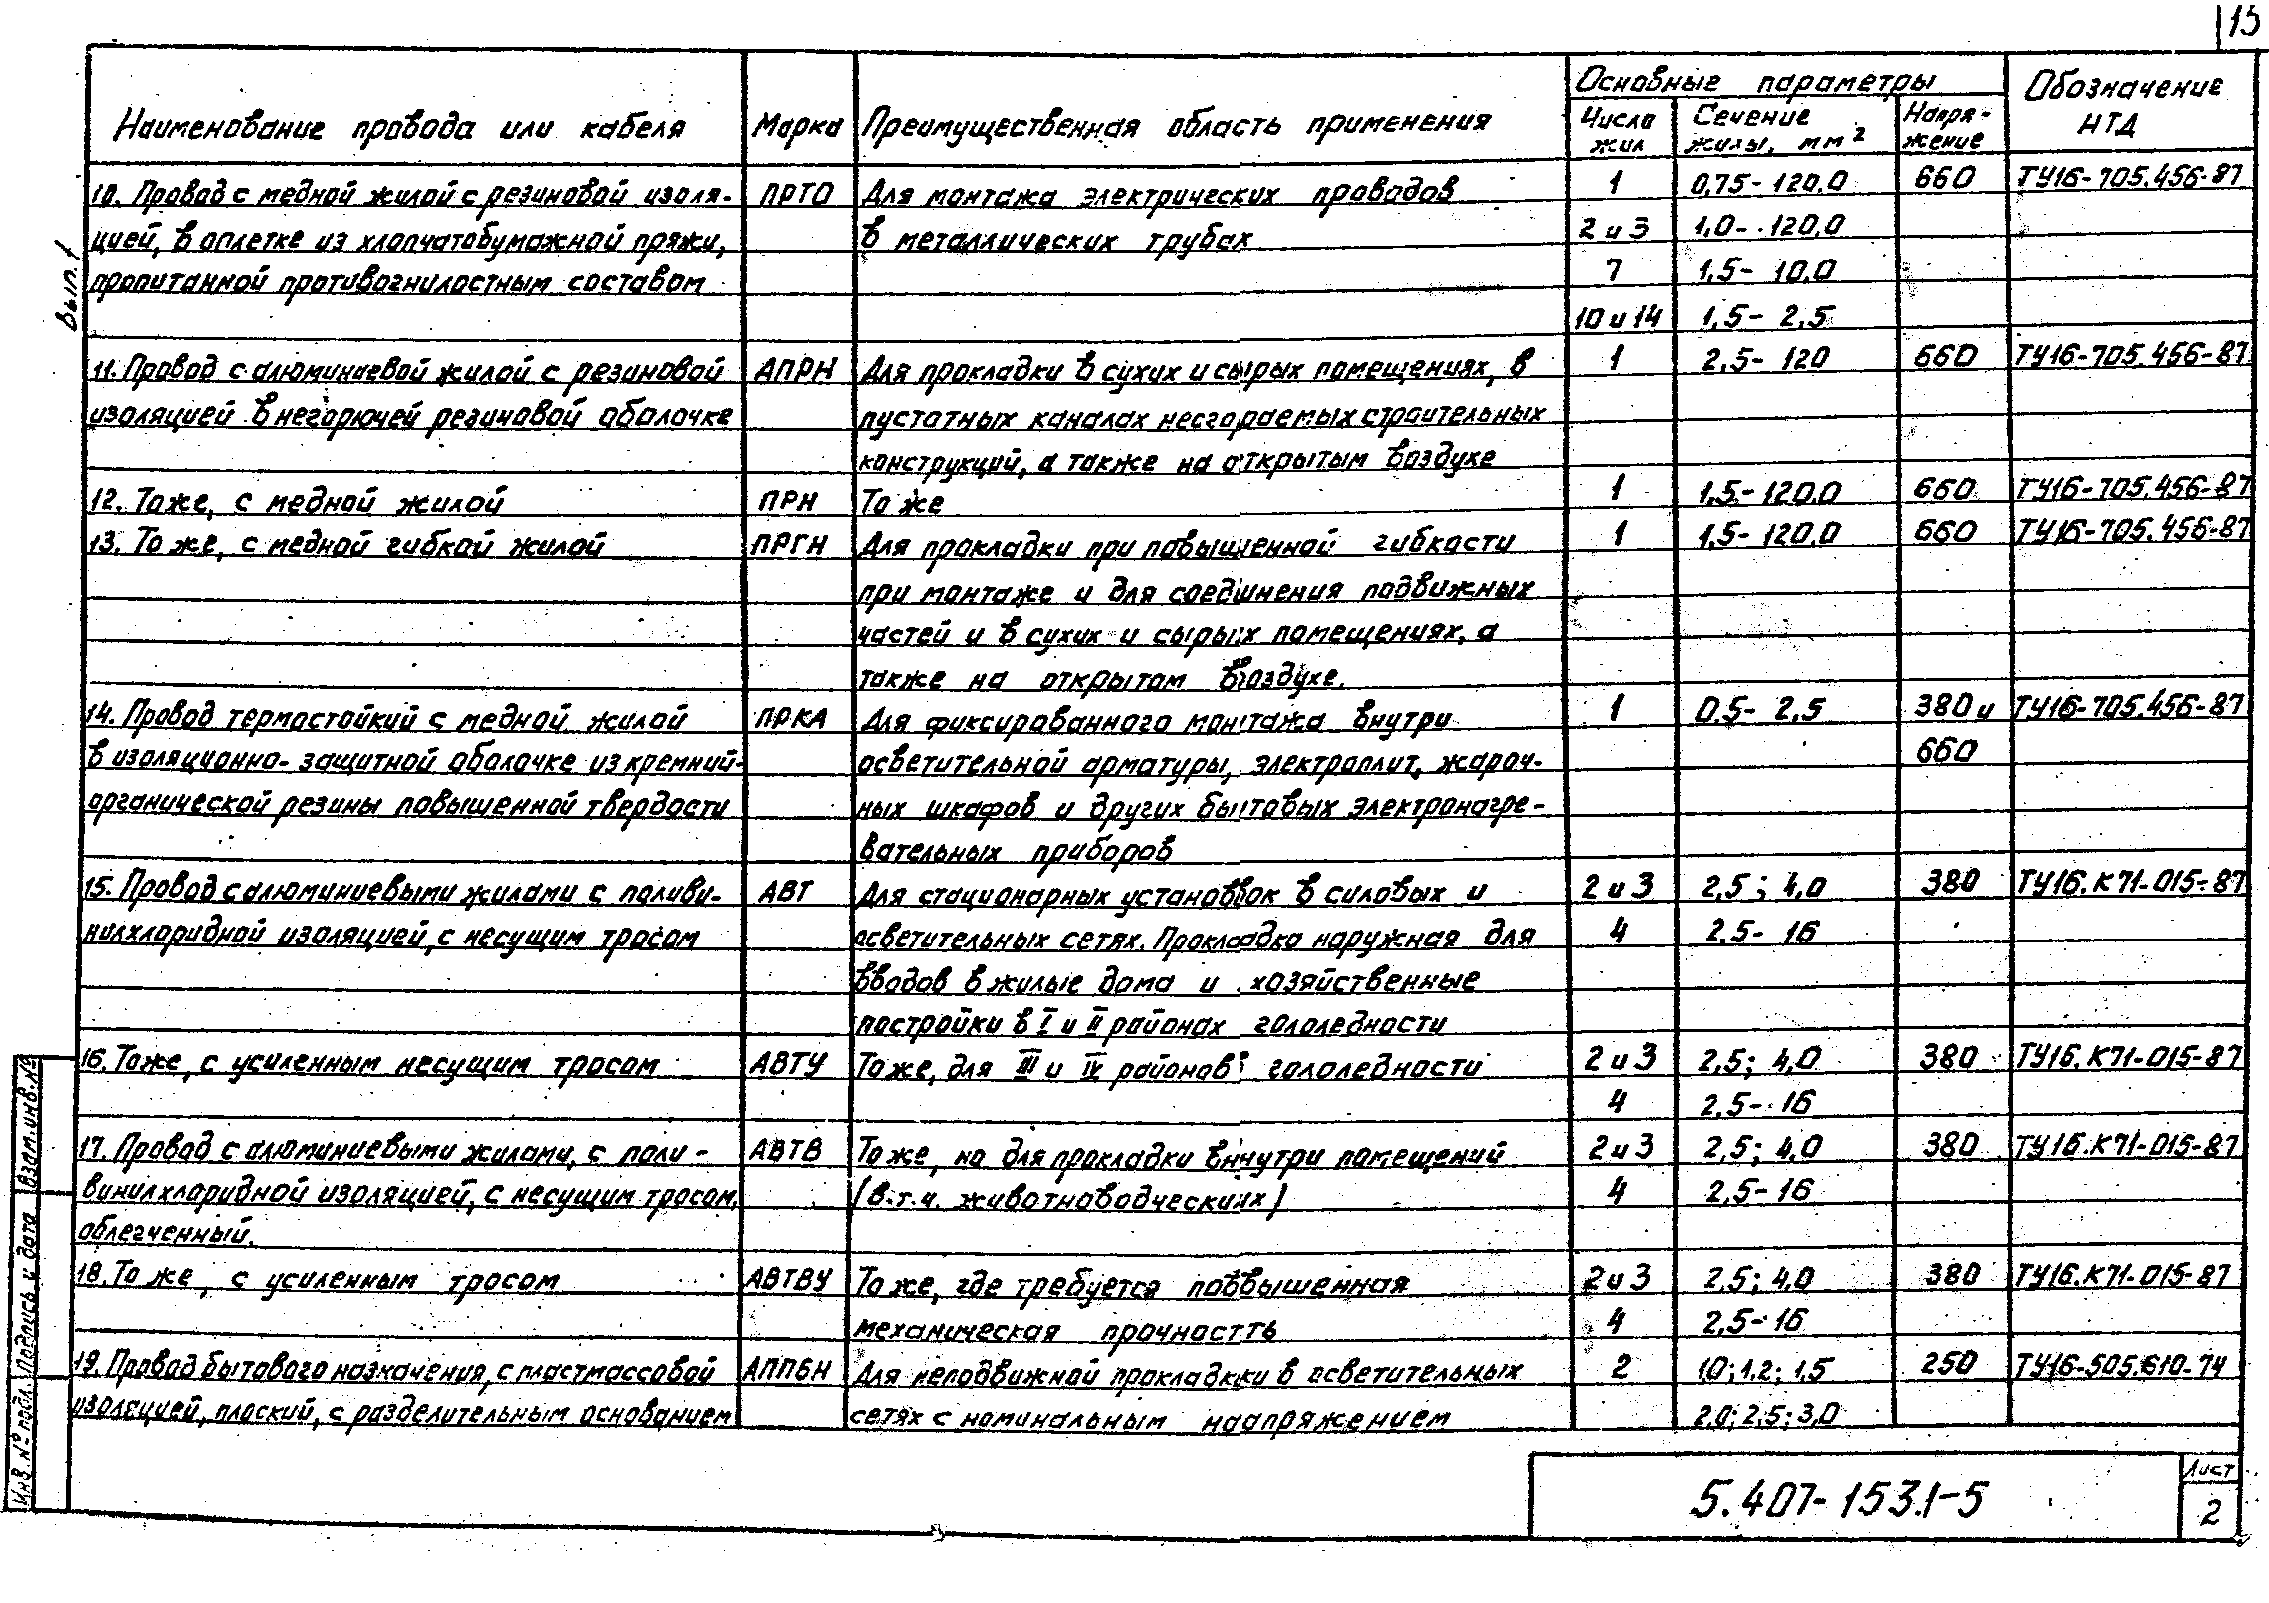 15
Наименование провода или кабеля | Марка | Преимущественная область применения | Основные параметры | Обозначение НТД
Числа жил | Сечение жилы, мм² | Напряжение
Вып. 1
10. Провод с медной жилой с резиновой изоля- | ПРТО | Для монтажа электрических проводов | 1 | 0,75-120,0 | 660 | ТУ16-705.456-87
цией, в оплетке из хлопчатобумажной пряжи, | в металлических трубах | 2 и 3 | 1,0-120,0
пропитанной противогнилостным составом | 7 | 1,5-10,0
10 и 14 | 1,5-2,5
11. Провод с алюминиевой жилой с резиновой | АПРН | Для прокладки в сухих и сырых помещениях, в | 1 | 2,5-120 | 660 | ТУ16-705.456-87
изоляцией в негорючей резиновой оболочке | пустотных каналах несгораемых строительных
конструкций, а также на открытым воздухе
12. Тоже, с медной жилой | ПРН | То же | 1 | 1,5-120,0 | 660 | ТУ16-705.456-87
13. То же, с медной гибкой жилой | ПРГН | Для прокладки при повышенной гибкости | 1 | 1,5-120,0 | 660 | ТУ16-705.456-87
при монтаже и для соединения подвижных
частей и в сухих и сырых помещениях, а
также на открытом воздухе.
14. Провод термостойкий с медной жилой | ПРКА | Для фиксированного монтажа внутри | 1 | 0,5-2,5 | 380 и | ТУ16-705.456-87
в изоляционно-защитной оболочке из кремний- | осветительной арматуры, электроплит, жароч- | 660
органической резины повышенной твердости | ных шкафов и других бытовых электронагре-
вательных приборов
15. Провод с алюминиевыми жилами с поливи- | АВТ | Для стационарных установок в силовых и | 2 и 3 | 2,5; 4,0 | 380 | ТУ16.К71-015-87
нилхлоридной изоляцией, с несущим тросом | осветительных сетях. Прокладка наружная для | 4 | 2,5-16
вводов в жилые дома и хозяйственные
постройки в I и II районах гололедности
16. Тоже, с усиленным несущим тросом | АВТУ | То же, для III и IV районов гололедности | 2 и 3 | 2,5; 4,0 | 380 | ТУ16.К71-015-87
4 | 2,5-16
17. Провод с алюминиевыми жилами, с поли- | АВТВ | То же, но для прокладки внутри помещений | 2 и 3 | 2,5; 4,0 | 380 | ТУ16.К71-015-87
винилхлоридной изоляцией, с несущим тросом, | (в.т.ч. животноводческих) | 4 | 2,5-16
облегченный.
18. То же, с усиленным тросом | АВТВУ | То же, где требуется повышенная | 2 и 3 | 2,5; 4,0 | 380 | ТУ16.К71-015-87
механическая прочность | 4 | 2,5-16
19. Провод бытового назначения, с пластмассовой | АППБН | Для неподвижной прокладки в осветительных | 2 | 1,0; 1,2; 1,5 | 250 | ТУ16-505.610-74
изоляцией, плоский, с разделительным основанием | сетях с номинальным напряжением | 2,0; 2,5; 3,0
Взам. инв. №
Подпись и дата
Инв. № подл.
5.407-153.1-5
Лист
2